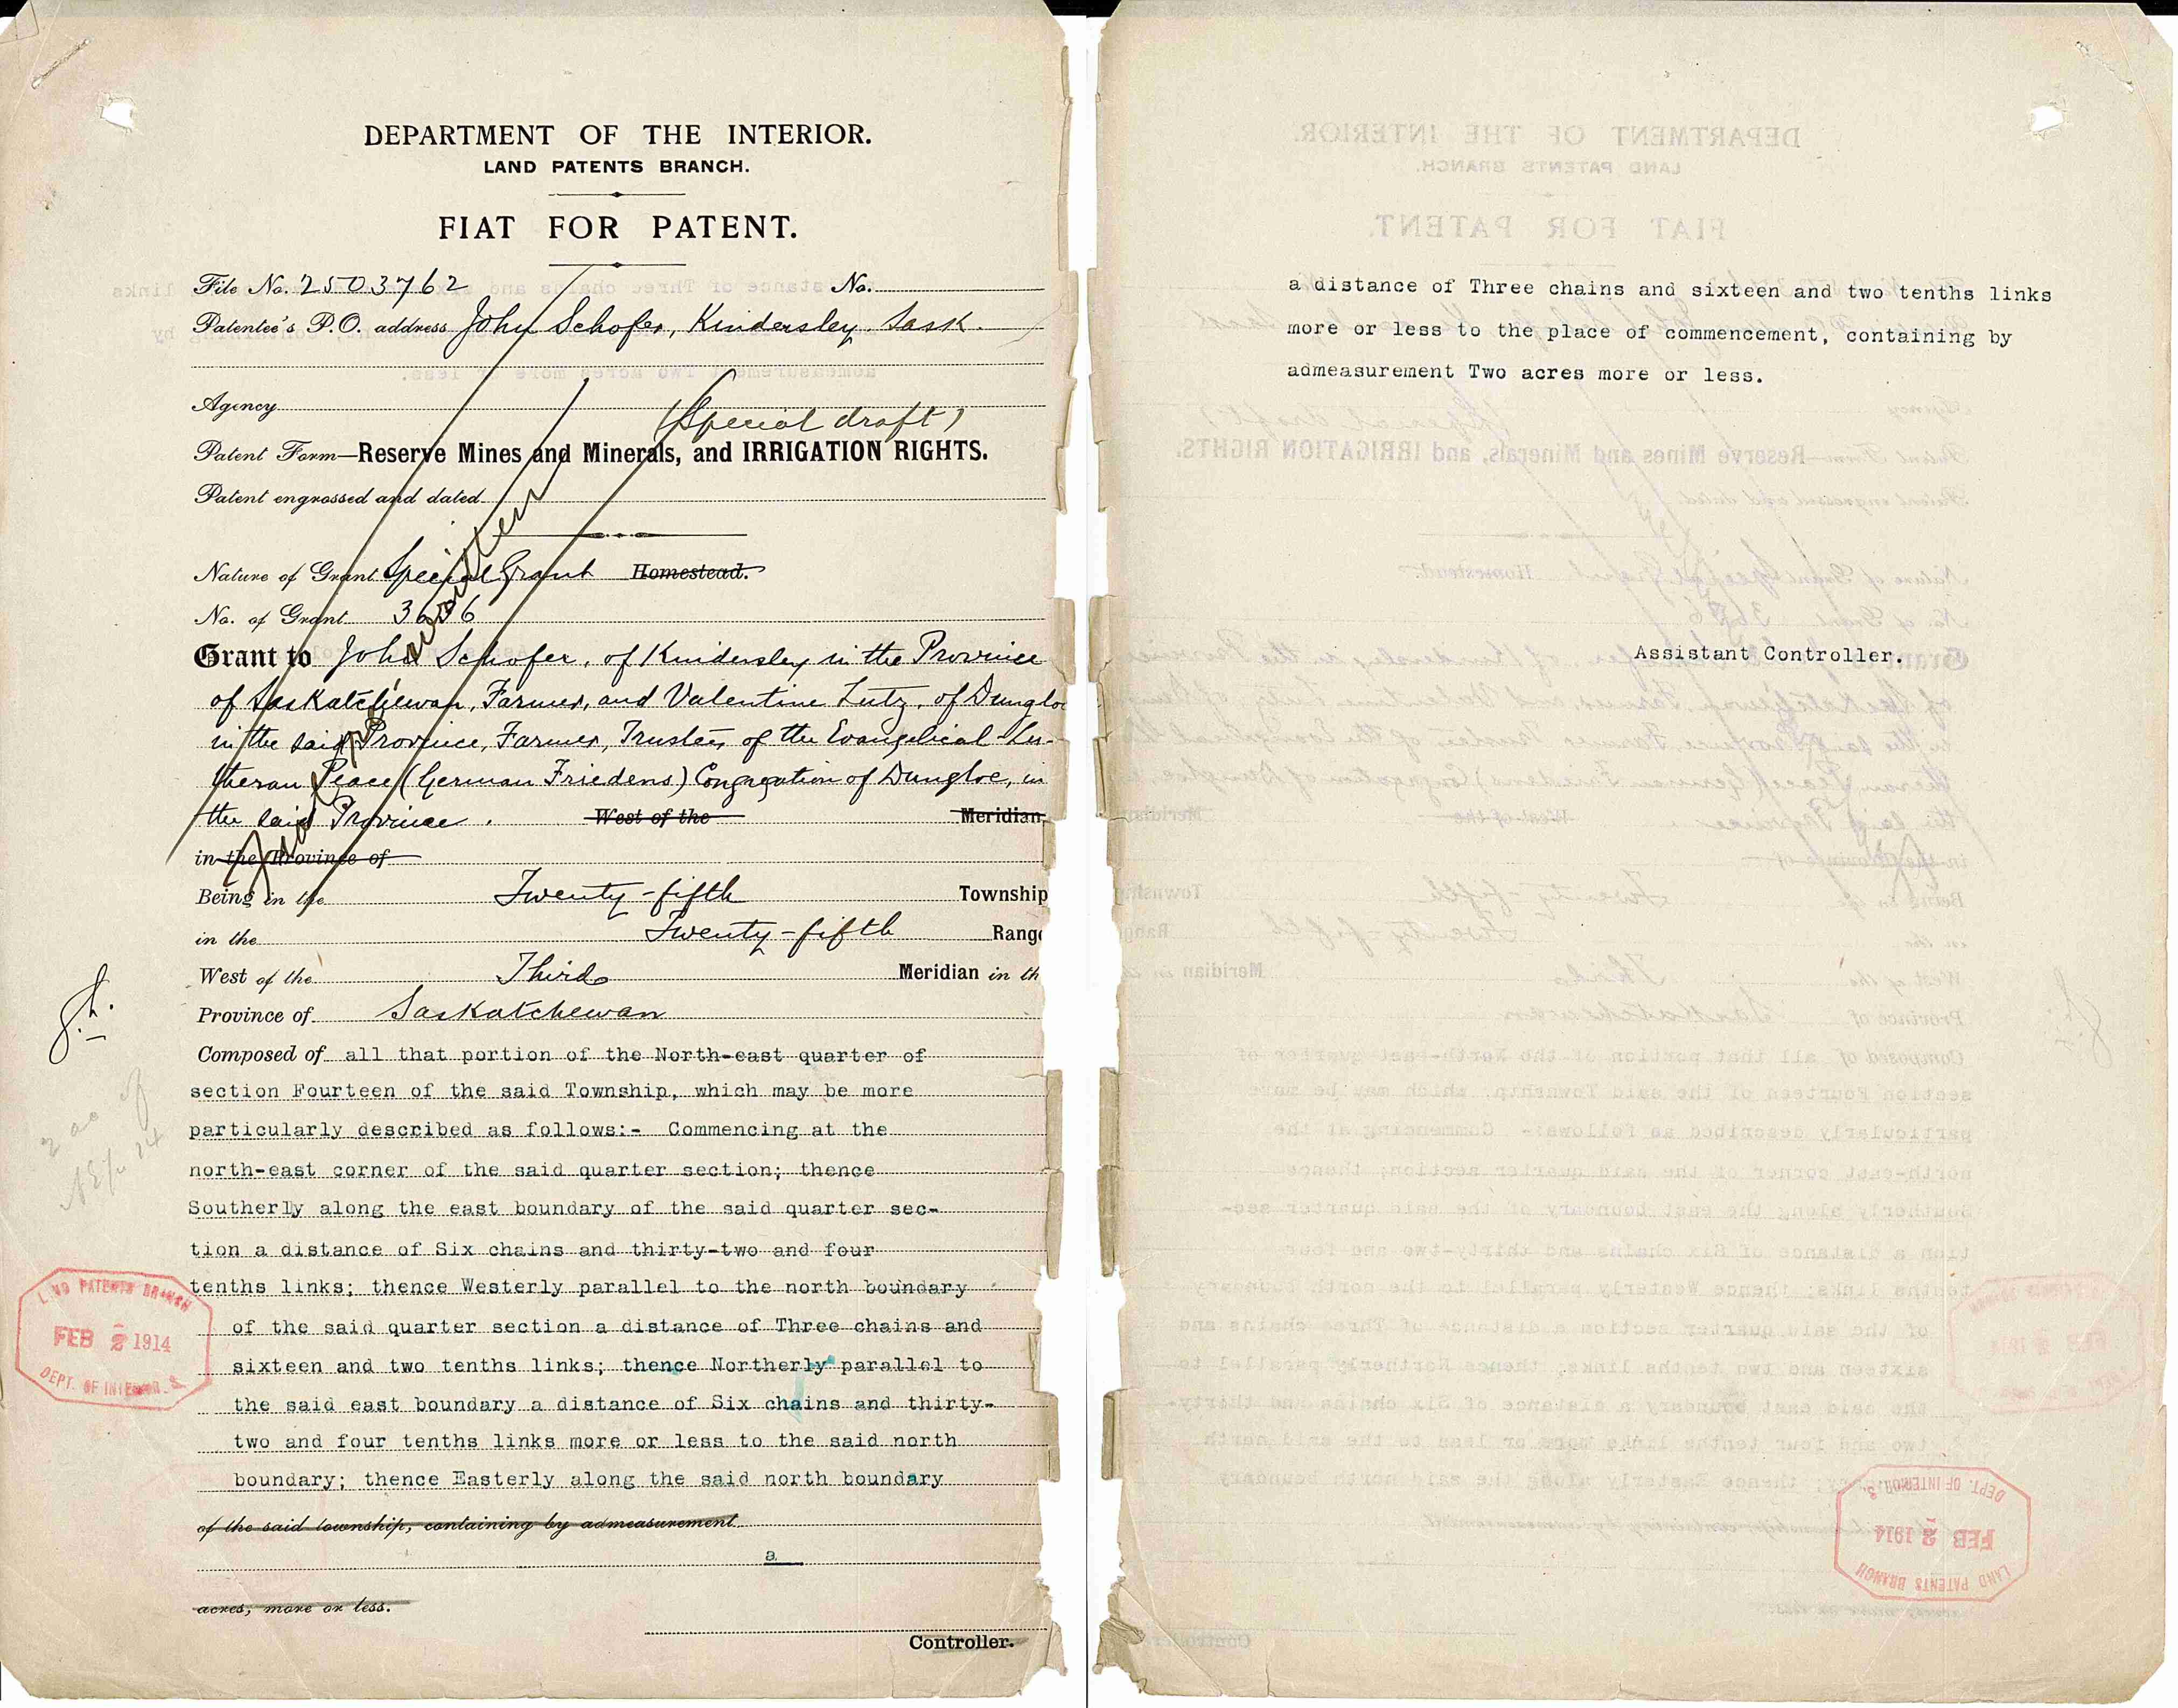 DEPARTMENT OF THE INTERIOR.
LAND PATENTS BRANCH.
FIAT FOR PATENT.
File No. 2503762 No.
Patentee's P.O. address John Schofer, Kindersley Sask.
Agency
(Special draft)
Patent Form—Reserve Mines and Minerals, and IRRIGATION RIGHTS.
Patent engrossed and dated
Nature of Grant Special Grant Homestead.
No. of Grant 3636
Grant to John Schofer, of Kindersley in the Province
of Saskatchewan, Farmer, and Valentine Lutz, of Dungloe
in the said Province, Farmer, Trustees of the Evangelical Lu-
theran Peace (German Friedens) Congregation of Dungloe, in
the said Province. West of the Meridian,
in the Province of
Being in the Twenty-fifth Township
in the Twenty-fifth Range
West of the Third Meridian in th
Province of Saskatchewan
Composed of all that portion of the North-east quarter of
section Fourteen of the said Township, which may be more
particularly described as follows:- Commencing at the
north-east corner of the said quarter section; thence
Southerly along the east boundary of the said quarter sec-
tion a distance of Six chains and thirty-two and four
tenths links; thence Westerly parallel to the north boundary
of the said quarter section a distance of Three chains and
sixteen and two tenths links; thence Northerly parallel to
the said east boundary a distance of Six chains and thirty-
two and four tenths links more or less to the said north
boundary; thence Easterly along the said north boundary
of the said township, containing by admeasurement
a
acres, more or less.
Controller.
2 ac of
NE¼ 14
LAND PATENTS BRANCH
FEB 2 1914
DEPT. OF INTERIOR
a distance of Three chains and sixteen and two tenths links
more or less to the place of commencement, containing by
admeasurement Two acres more or less.
Assistant Controller.
LAND PATENTS BRANCH
FEB 3 1914
DEPT. OF INTERIOR